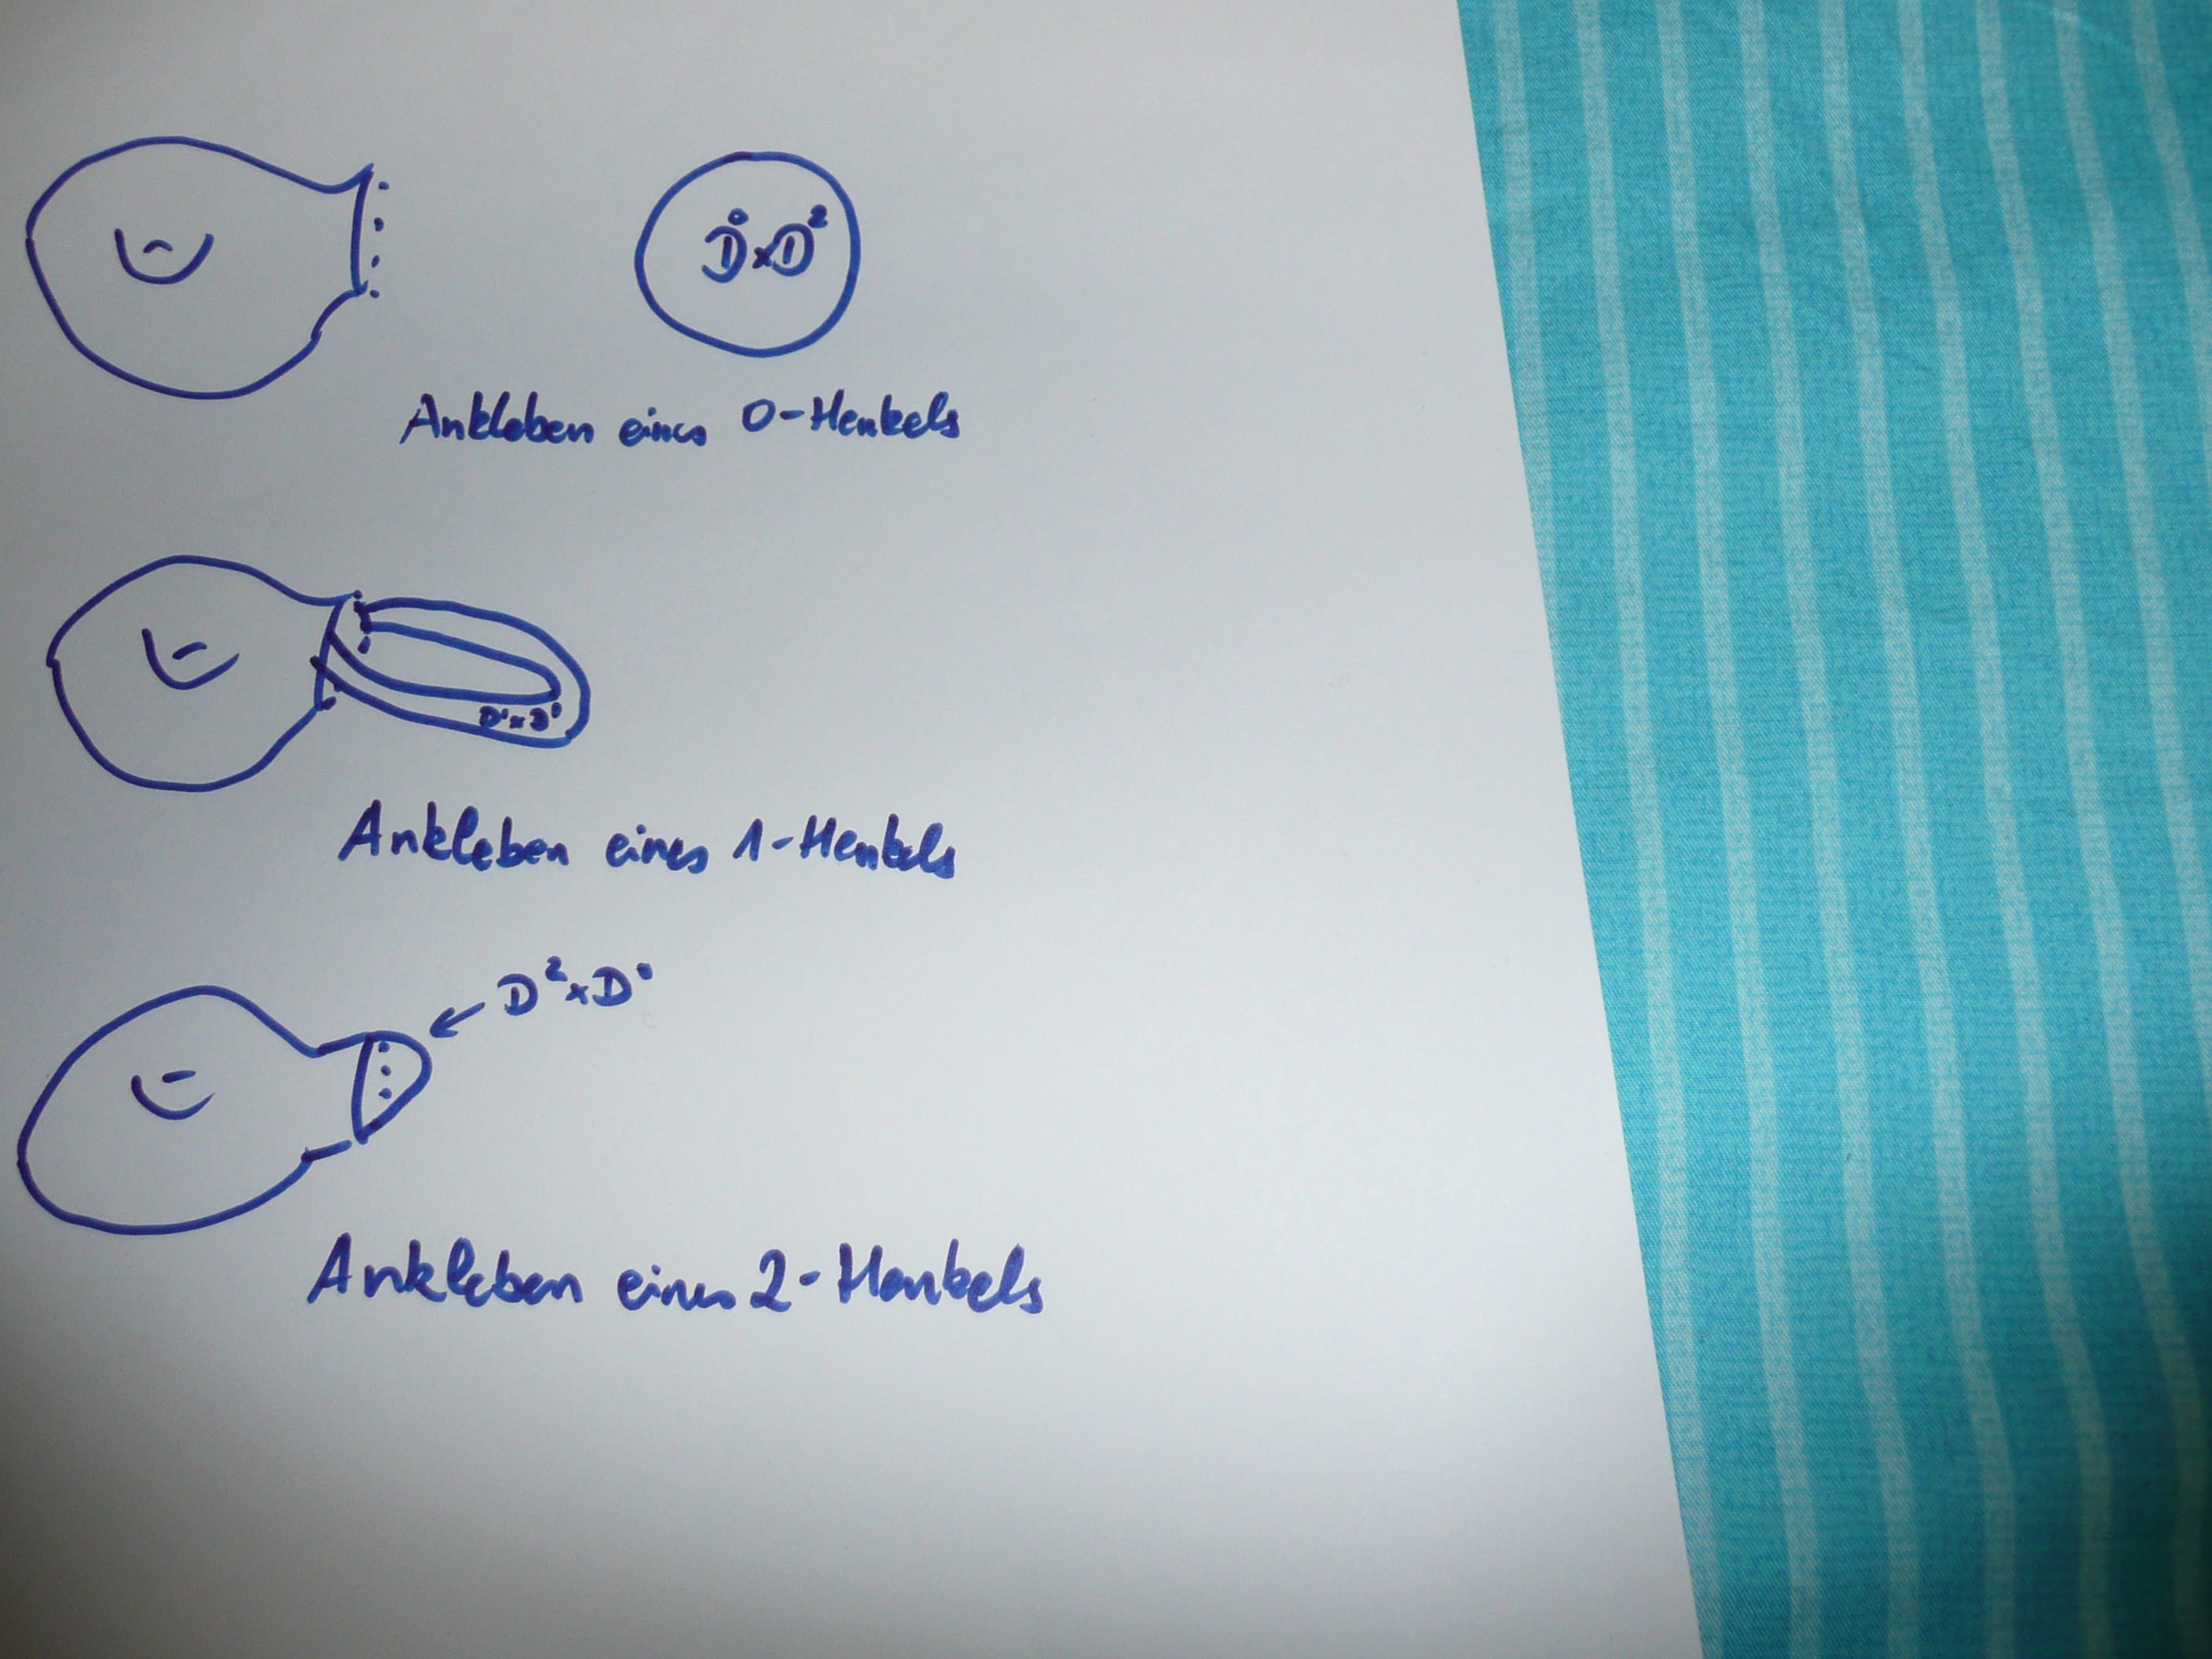 D⁰×D²
Ankleben eines 0-Henkels
D¹×D¹
Ankleben eines 1-Henkels
D²×D⁰
Ankleben eines 2-Henkels